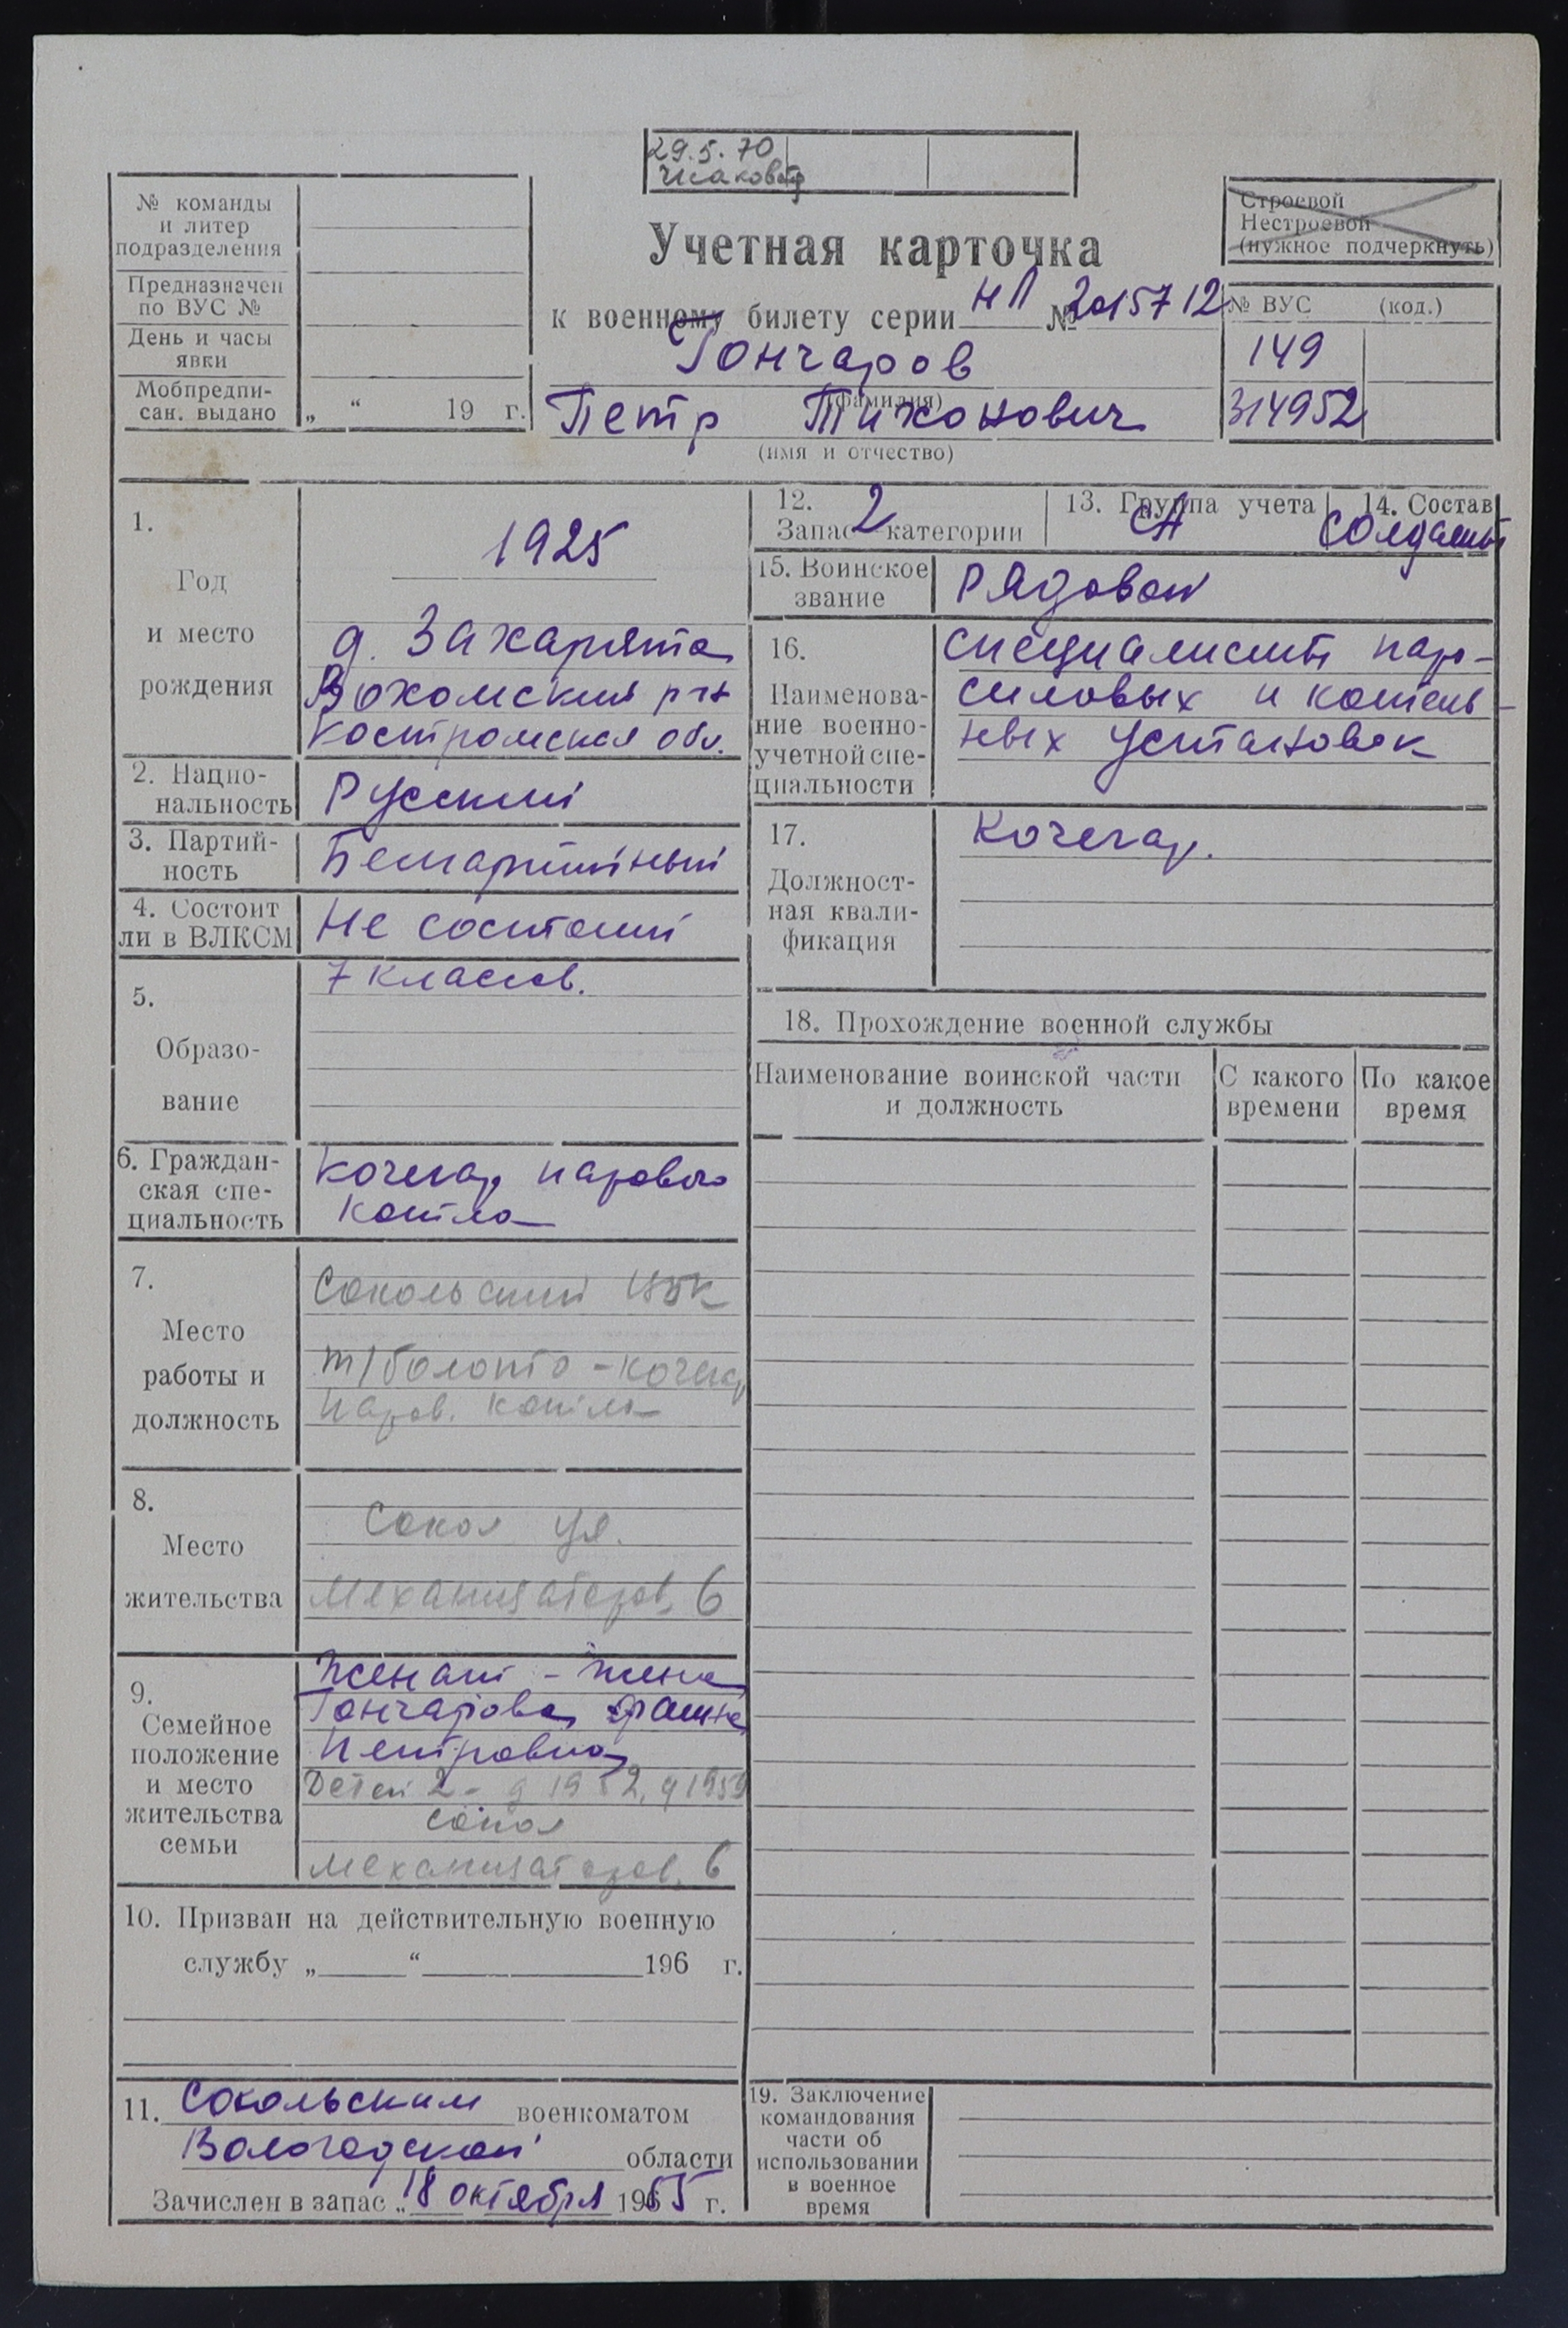 29.5.70
№ команды
и литер
подразделения
Предназначен
по ВУС №
День и часы
явки
Мобпредпи-
сан. выдано „ “ 19 г.
Строевой
Нестроевой
(нужное подчеркнуть)
Учетная карточка
к военному билету серии НЛ № 2015712
Гончаров
(фамилия)
Петр Тихонович
(имя и отчество)
№ ВУС (код.)
149
314952
1.
Год
и место
рождения
1925
д. Захарята
Вохомский р-н
Костромская обл.
2. Нацио-
нальность
Русский
3. Партий-
ность
Беспартийный
4. Состоит
ли в ВЛКСМ
Не состоит
5.
Образо-
вание
7 классов.
6. Граждан-
ская спе-
циальность
Кочегар парового
котла
7.
Место
работы и
должность
Сокольский ЦБК
т/болото - кочегар
паров. котла
8.
Место
жительства
Сокол ул.
Механизаторов, 6
9.
Семейное
положение
и место
жительства
семьи
Женат - жена
Гончарова
Петровна
Детей 2 - д 1952, д 1959
Сокол
Механизаторов, 6
10. Призван на действительную военную
службу „ “ 196 г.
11. Сокольским военкоматом
Вологодской области
Зачислен в запас „18 октября 1965 г.
12.
Запас 2 категории
13. Группа учета
СА
14. Состав
Солдаты
15. Воинское
звание
Рядовой
16.
Наименова-
ние военно-
учетной спе-
циальности
Специалисты паро-
силовых и котель-
ных установок
17.
Должност-
ная квали-
фикация
Кочегар.
18. Прохождение военной службы
Наименование воинской части
и должность
С какого
времени
По какое
время
19. Заключение
командования
части об
использовании
в военное
время